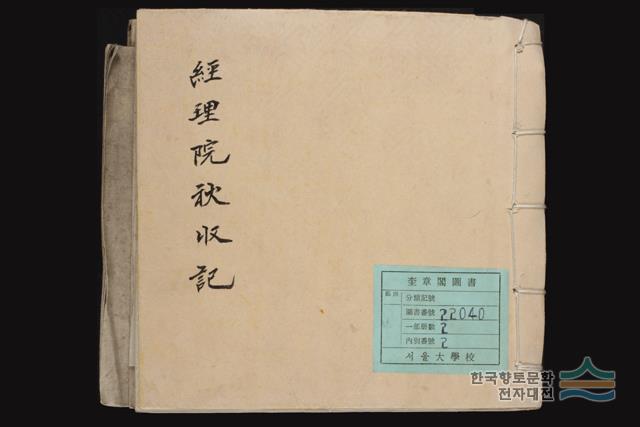 經理院秋収記
奎章閣圖書
分類記號
圖書番號 22040
一部册數 2
內別番號 2
서울大學校
한국향토문화
전자대전